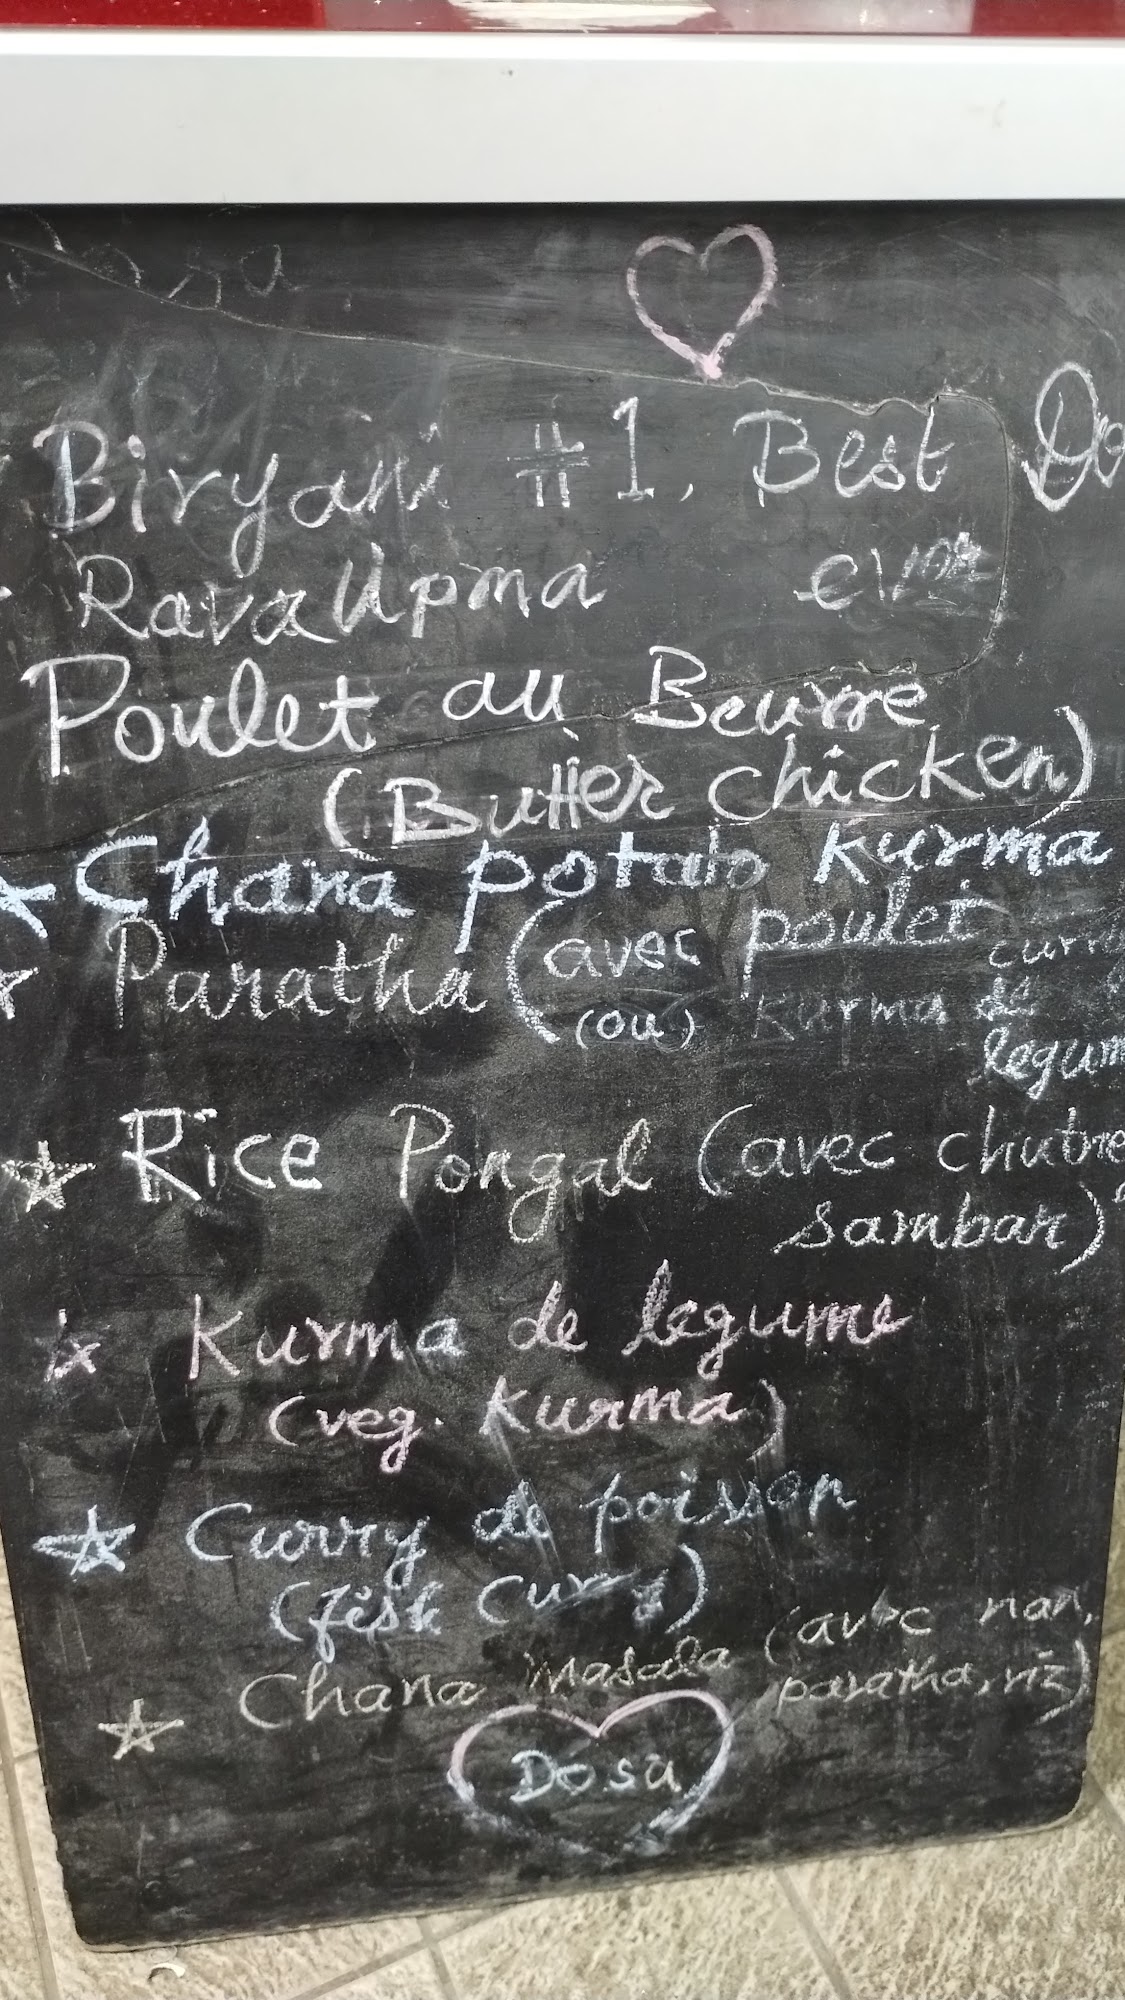 Biryani #1. Best Do
Rava Upma
Poulet au Beurre
(Butter chicken)
Chana potato Kurma
Paratha (avec poulet curry
(ou) Kurma de
legum
Rice Pongal (avec chutne
sambar)
Kurma de legume
(veg. Kurma)
Curry de poisson
(fish curry)
Chana Masala (avec nan,
paratha, riz)
Dosa